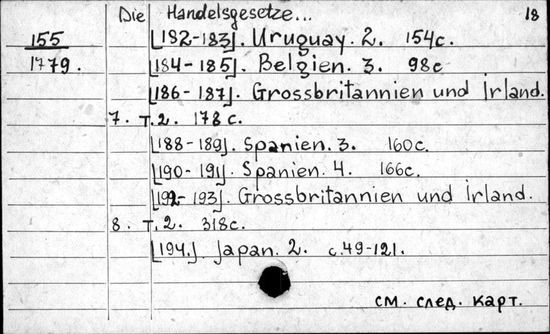 Die Handelsgesetze... 18
155 [182-183]. Uruguay. 2. 154c.
1779. [184-185]. Belgien. 3. 98c
[186-187]. Grossbritannien und Irland.
7. T.2. 178 c.
[188-189]. Spanien. 3. 160c.
[190-191]. Spanien. 4. 166c.
[192-193]. Grossbritannien und Irland.
8. T.2. 318c.
[194.] Japan. 2. c.49-121.
см. след. карт.